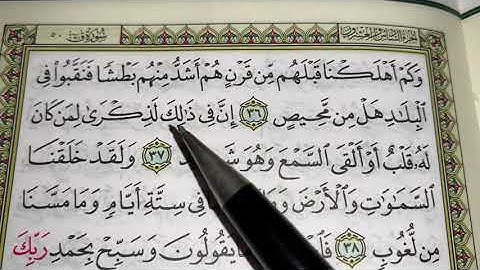 سورة ق ٥٠ الجزء السادس والعشرون
وَكَمْ أَهْلَكْنَا قَبْلَهُم مِّن قَرْنٍ هُمْ أَشَدُّ مِنْهُم بَطْشًا فَنَقَّبُوا۟ فِى
ٱلْبِلَٰدِ هَلْ مِن مَّحِيصٍ ٣٦ إِنَّ فِى ذَٰلِكَ لَذِكْرَىٰ لِمَن كَانَ
لَهُۥ قَلْبٌ أَوْ أَلْقَى ٱلسَّمْعَ وَهُوَ ٣٧ وَلَقَدْ خَلَقْنَا
ٱلسَّمَٰوَٰتِ وَٱلْأَرْضَ فِى سِتَّةِ أَيَّامٍ وَمَا مَسَّنَا
مِن لُّغُوبٍ ٣٨ يَقُولُونَ وَسَبِّحْ بِحَمْدِ رَبِّكَ